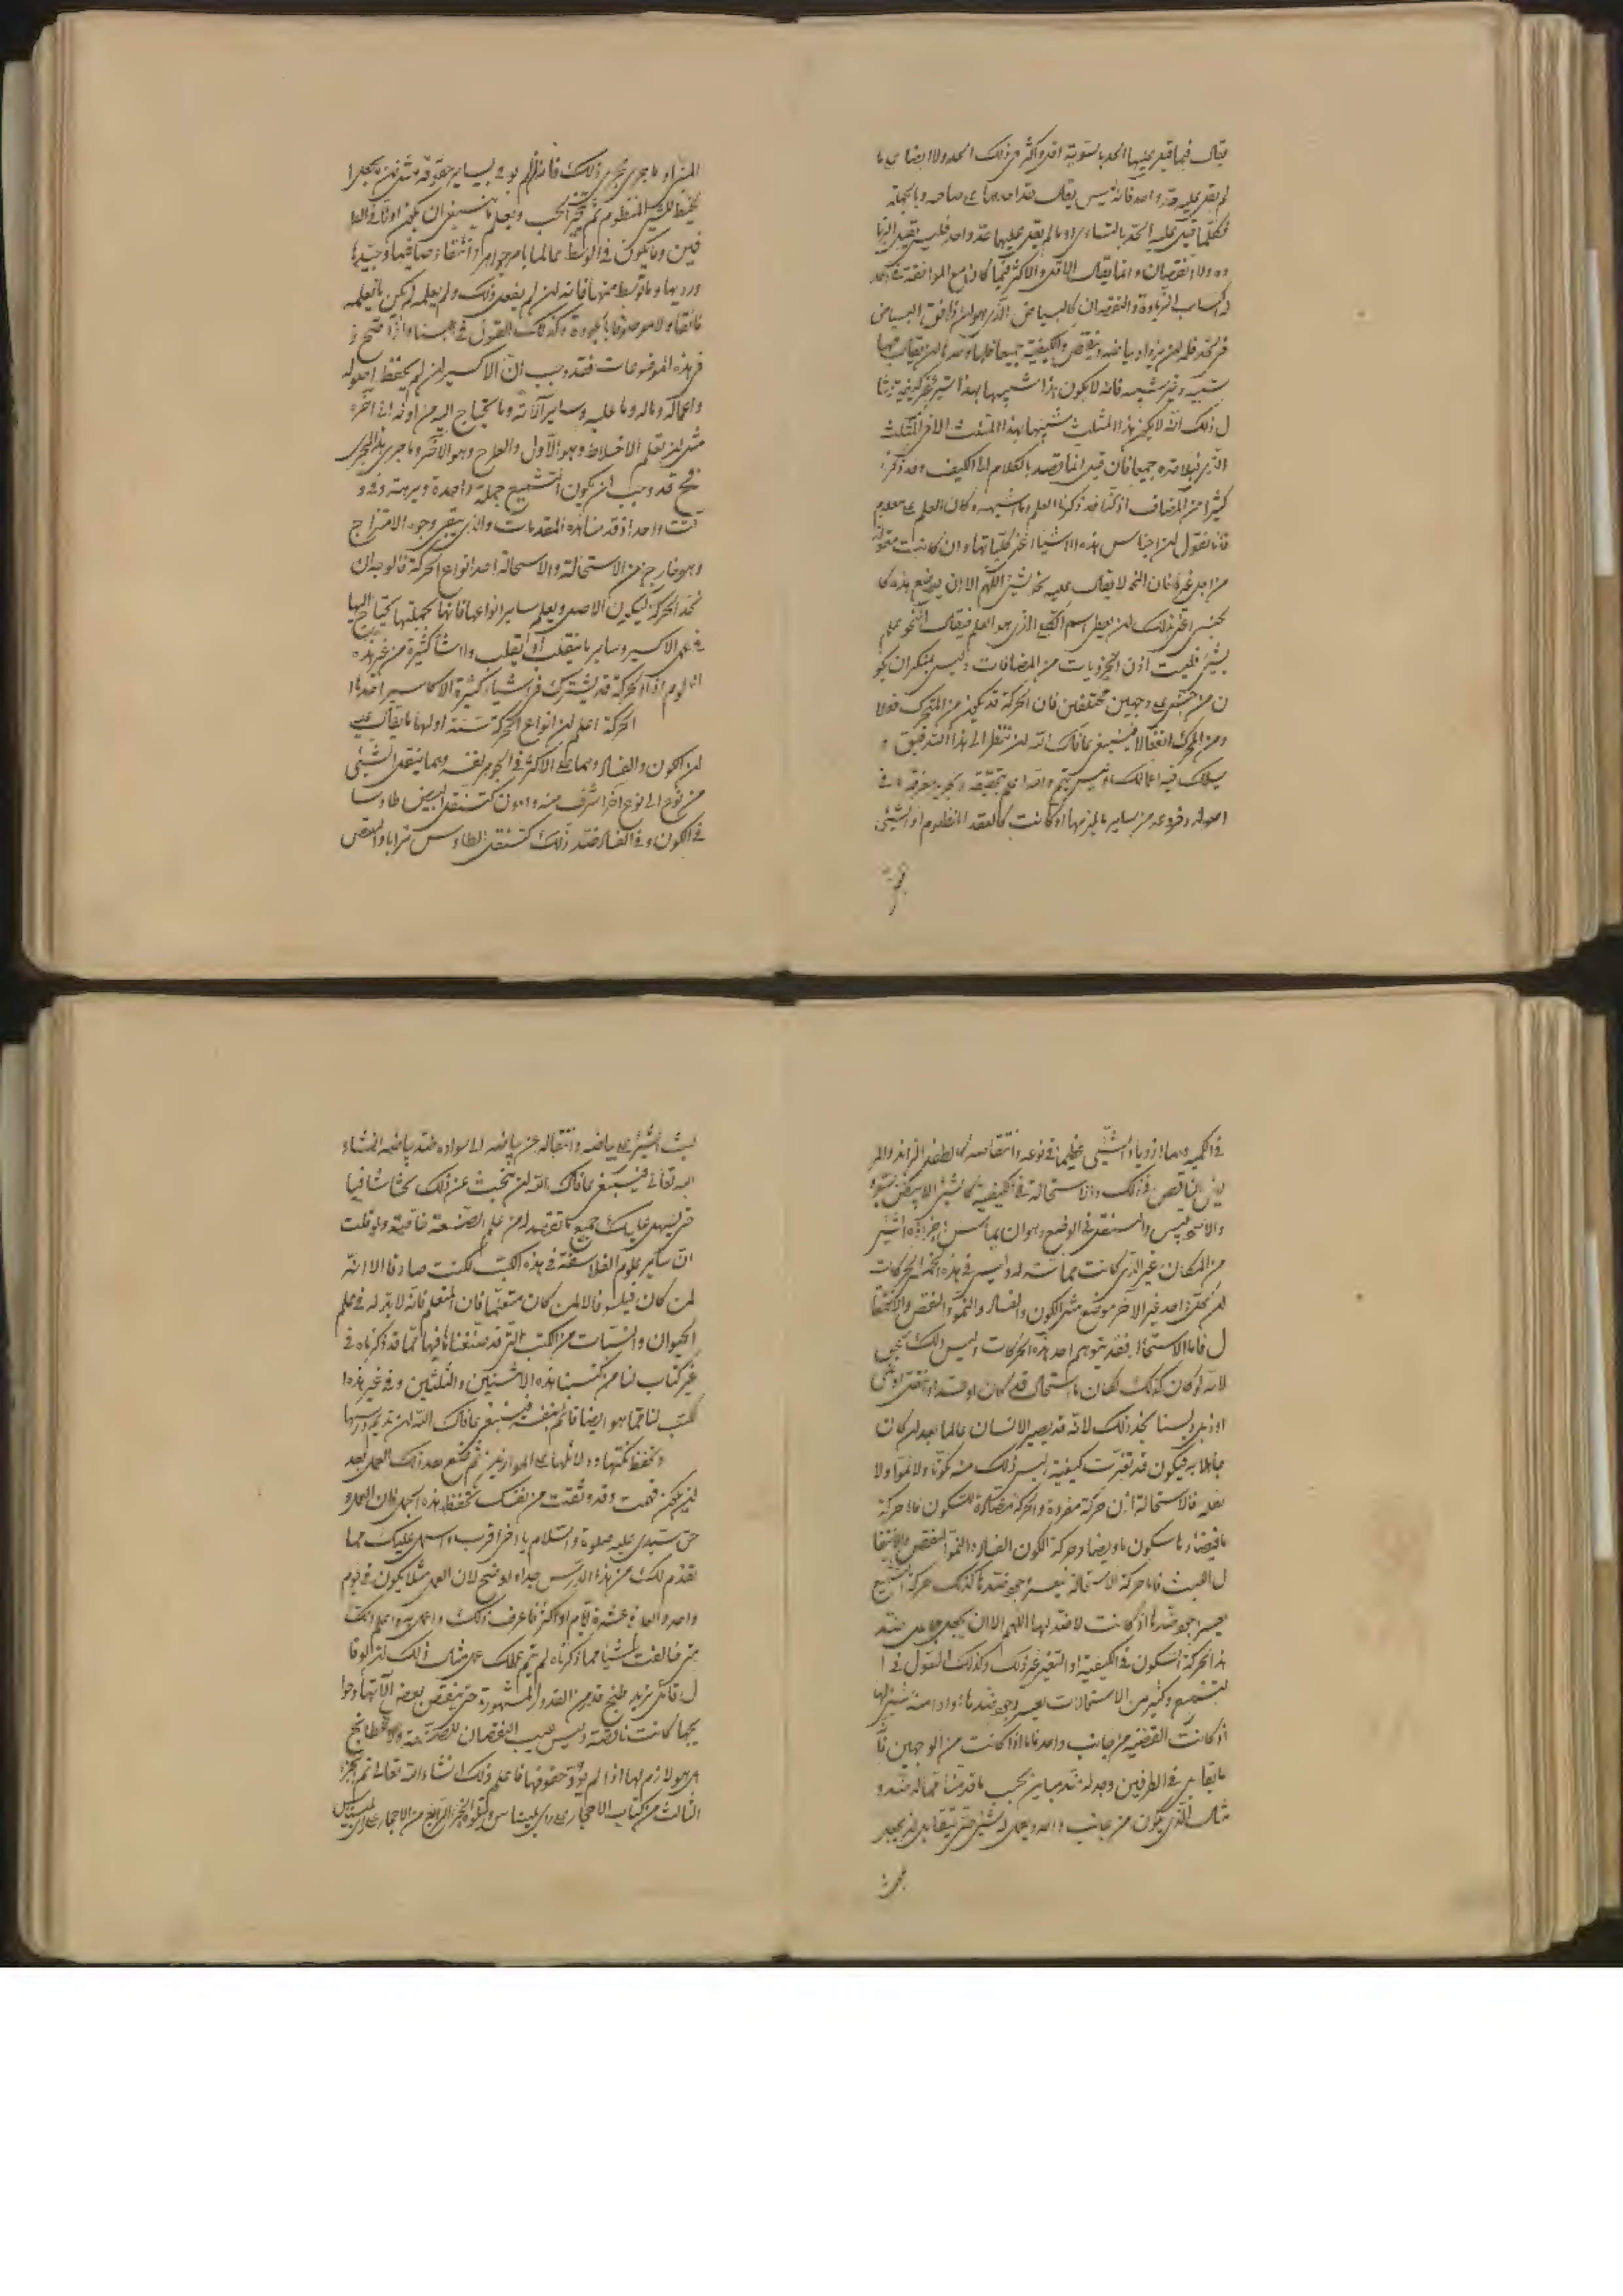 يقال فيما قيل عليها الحد بالسوية اقل واكثر من ذلك الحد ولا ايضا على ما
لم يقل عليه حد واحد فانه ليس يقال هذا احدهما على صاحبه وبالجملة
فكلما قيل عليه الحد بالتساوي او ما لم يقل عليهما حد واحد فليس يقبل الزيا
ده ولا النقصان وانما يقال الاقل والاكثر فيما كان مع الموافقة في الحد
الزيادة والنقصان كالبياض الذي هو وان وافق البياض
في الحد فله ان يزداد بياضه وينقص والكيفية جميعا فلها وحدها ان يقال فيها
شبيه وغير شبيه فانه لا يكون هذا شبيها بهذا بشيء غير كيفيته مثا
ل ذلك انه لا يكون هذا المثلث شبيها بهذا المثلث الا في المثلث
الذي قبلاه جميعا فان قيل انما قصد بالكلام الى الكيف وقد ذكر
كثيرا من المضاف اذ كنا قد ذكرنا العلم وما اشبهه وكان العلم علم معلوم
فانا نقول ان اجناس هذه الاشياء اعني كلياتها وان كانت مقولة
من اجل غيرها فان النحو لا يقال عليه نحو لشيء اللهم الا ان يوضع هذه كا
لجنس اعني بذلك ان يعطى اسم الجميع الذي هو العلم فيقال النحو علم
بشيء فليست اذن الجزويات من المضافات وليس بمنكر ان يكو
ن من جنس على وجهين مختلفين فان الحركة قد تكون من المتحرك فعلا
ومن المحرك انفعالا فينبغي عافاك الله ان تنظر الى هذا التدقيق و
يسلك فيه اعمالك وليس يتم واحد الا بتحقيقه
اصوله وفروعه من ساير ما يلزمها او كانت كالعقد المنظوم او الشيء
المر او ما جرى مجرى ذلك فانه ان لم يوف بساير حقوقه مثل ان يجعل ا
لخيط للشيء المنظوم ثم تخير الحب ويعلم ما ينبغي ان يكون اولا في الطر
فين وما يكون في الوسط عالما بامر جواهره وانتقاد صافيها وجيدها
ورديها وما توسط منها فانه ان لم يفعل ذلك ولم يعلمه لم يكن ما يعلمه
فائقا ولا موصوفا بالجودة وكذلك القول في البناء واذا صح
في هذه الموضوعات فقد وجب ان الاكسير ان لم يحفظ اصوله
واعماله وماله وما عليه وساير آلاته وما يحتاج اليه من اوله الى آخره
مثل ان تعلم الاخلاط وهو الاول والطرح وهو الآخر وما جرى هذا المجرى
فقد وجب ان يكون التشميع جملة واحدة ومرة وفي و
قت واحد اذ قدمنا هذه المقدمات والذي يتقي وجوه الامتزاج
وهو خارج من الاستحالة والاستحالة احد انواع الحركة فالوجه ان
نحد الحركة ليكون الاصل ويعلم ساير انواعها فانها بجملتها يحتاج اليها
في عمل الاكسير وساير ما ينقلب او يقلب واشيا كثيرة من غير هذه
العلوم اذ الحركة قد يشترك في اشياء كثيرة الاكاسير احدها
الحركة اعلم ان انواع الحركة ستة اولها ما يقال عليه
ان الكون والفساد وهما على الاكثر في الجوهر نفسه وهما ينقل الشيء
من نوع الى نوع آخر اشرف منه وادون كتنقل البيض طاوسا
في الكون وفي الفساد ضد ذلك كتنقل الطاوس ترابا والنقص
في الكمية وهما ازدياد الشيء عظما في نوعه وانتقاصه كالطفل الزايد والهر
الناقص في ذلك والاستحالة في الكيفية كالشيء الابيض يسو
والمستقل في الوضع وهو ان يماس
من المكان غير الذي كانت مماسته له وليس في هذه الخمسة الحركات
ان يحل واحد غير الآخر موضع مثل الكون والفساد والنمو والنقص والانتقا
ل فاما الاستحالة فقد يتوهم احد هذه الحركات وليس ذلك بحق
لانه لو كان كذلك لكان ما استحال قد كان او فسد او انتقل او نمى
او ذبل ولسنا نجد ذلك لانه قد يصير الانسان عالما بعد ان كان
جاهلا به فيكون قد تغيرت كيفيته وليس ذلك منه كونا ولا نموا ولا
نقله فالاستحالة اذن حركة مفردة والحركة مضادة للسكون فاما حركة
ما فيضادها سكون ما وايضا وحركة الكون الفساد والنمو النقص والانتقا
ل اللبث فاما حركة الاستحالة فيعسر وجود ضدها كذلك حركة التشميع
يعسر وجود ضدها اذ كانت لا ضد لها اللهم الا ان يجعل جاعل ضد
هذا الحركة السكون في الكيفية او التغير عن ذلك وكذلك القول في ا
لتشميع وكثير من الاستحالات يعسر وجود ضدها
اذ كانت القضية من جانب واحد فاما اذا كانت من الوجهين فا
ما يقابل في الطرفين وجد له ضد مباين بحسب ما قدمنا فما له ضد و
مثال الذي يكون من جانب واحد ويعمل له شيء حتى يتقابل ان يجعل
لبث الشيء على بياضه وانتقاله عن بياضه الى سواده ضد بياضه انشاء
الله تعالى فينبغي عافاك الله ان تبحث عن ذلك بحثا شافيا
حتى يسهل عليك جميع ما تقصد له من علم الصنعة خاصة ولو قلت
ان ساير علوم الفلاسفة في هذه الكتب لكنت صادقا الا انه
لمن كان فيلسوفا لا لمن كان متعلما فان المتعلم فانه لا بد له في علم
الحيوان والنبات من الكتب التي قد صنفناها فيها مما قد ذكرناه في
غير كتاب لنا من كتبنا هذه الاثنين والثلثين وفي غير هذه ا
لكتب لنا مما هو ايضا قائم بنفسه فينبغي عافاك الله ان تديم درسها
وتحفظ نكتها ودلائلها على الموازين ثم تضع بعد ذلك العمل بعد
ان يكون فهمت وقد وثقت من نفسك بحفظ هذه الجمل فان العمل و
حق سيدي عليه صلوة والسلام يا اخي اقرب واسهل عليك مما
تقدم لك من هذا الدرس جدا وواضح لان العمل مثلا يكون في يوم
واحد والعاشرة عشرة ايام او اكثر فاعرف ذلك واعمل به واعلم انك
متى خالفت شيئا مما ذكرناه لم يتم عملك على مثال ذلك انه لو قا
ل قائل نريد طبخ قدر من القدور المشهورة حتى ينقص بعض آلاتها وحوا
يجها كانت ناقصة وليس عيب النقصان للصنعة ولا للطابخ
بل هو لازم لها اذا لم يوف حقوقها فاعلم ذلك انشاء الله تعالى تم الجزء
الثالث من كتاب الاحجار على راي بليناس ويتلوه الجزء الرابع من الاحجار على راي بليناس